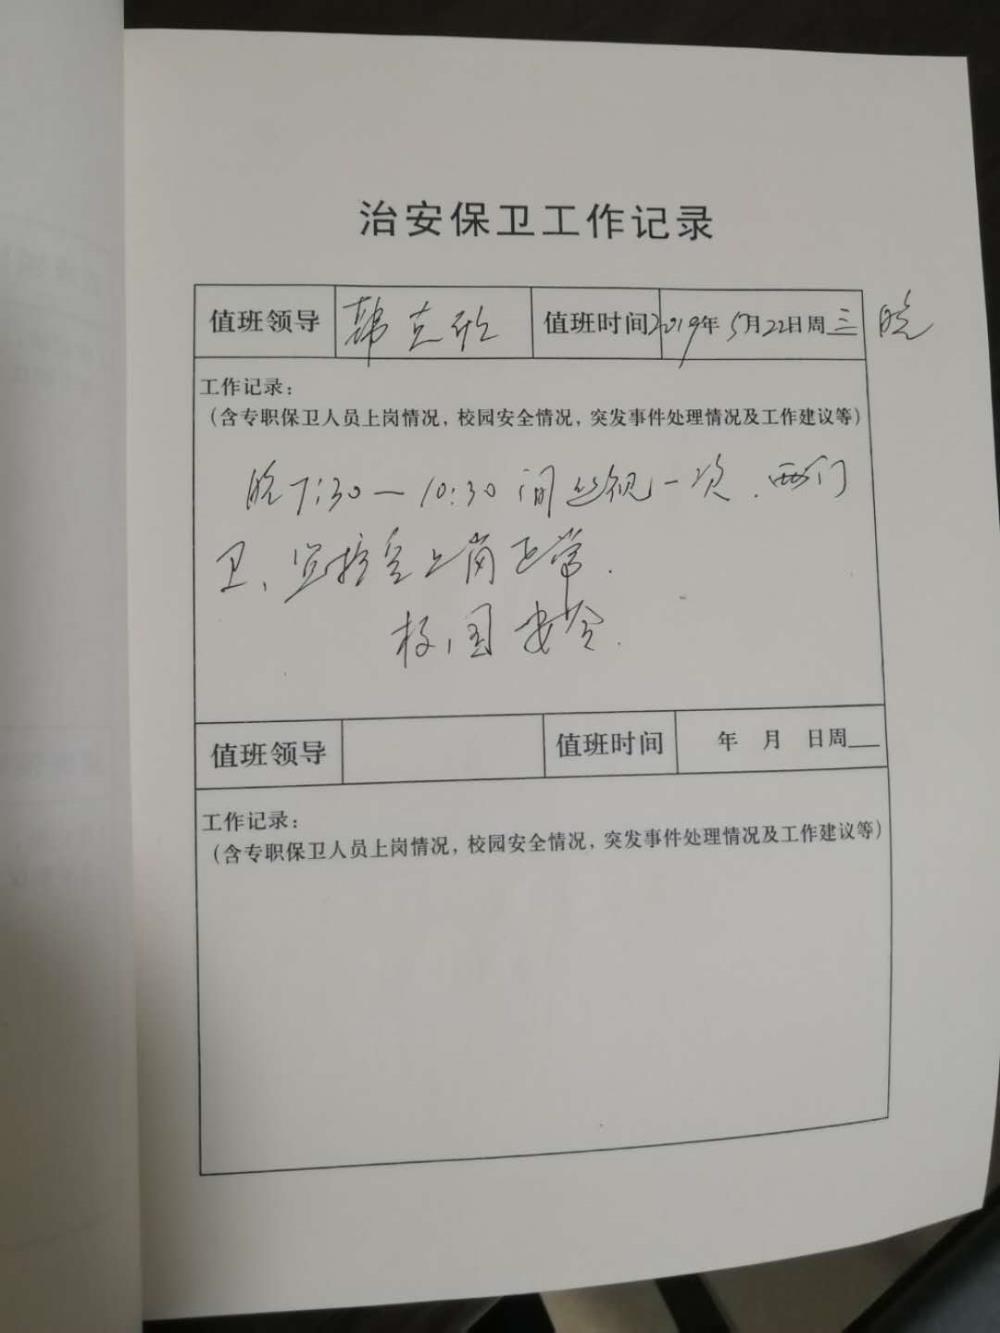 治安保卫工作记录
值班领导 韩克欣 值班时间 2019年5月22日周三 晚
工作记录：
（含专职保卫人员上岗情况，校园安全情况，突发事件处理情况及工作建议等）
晚7:30—10:30间巡视一次.两门
卫、监控室上岗正常.
校园安全.
值班领导 值班时间 年 月 日周
工作记录：
（含专职保卫人员上岗情况，校园安全情况，突发事件处理情况及工作建议等）